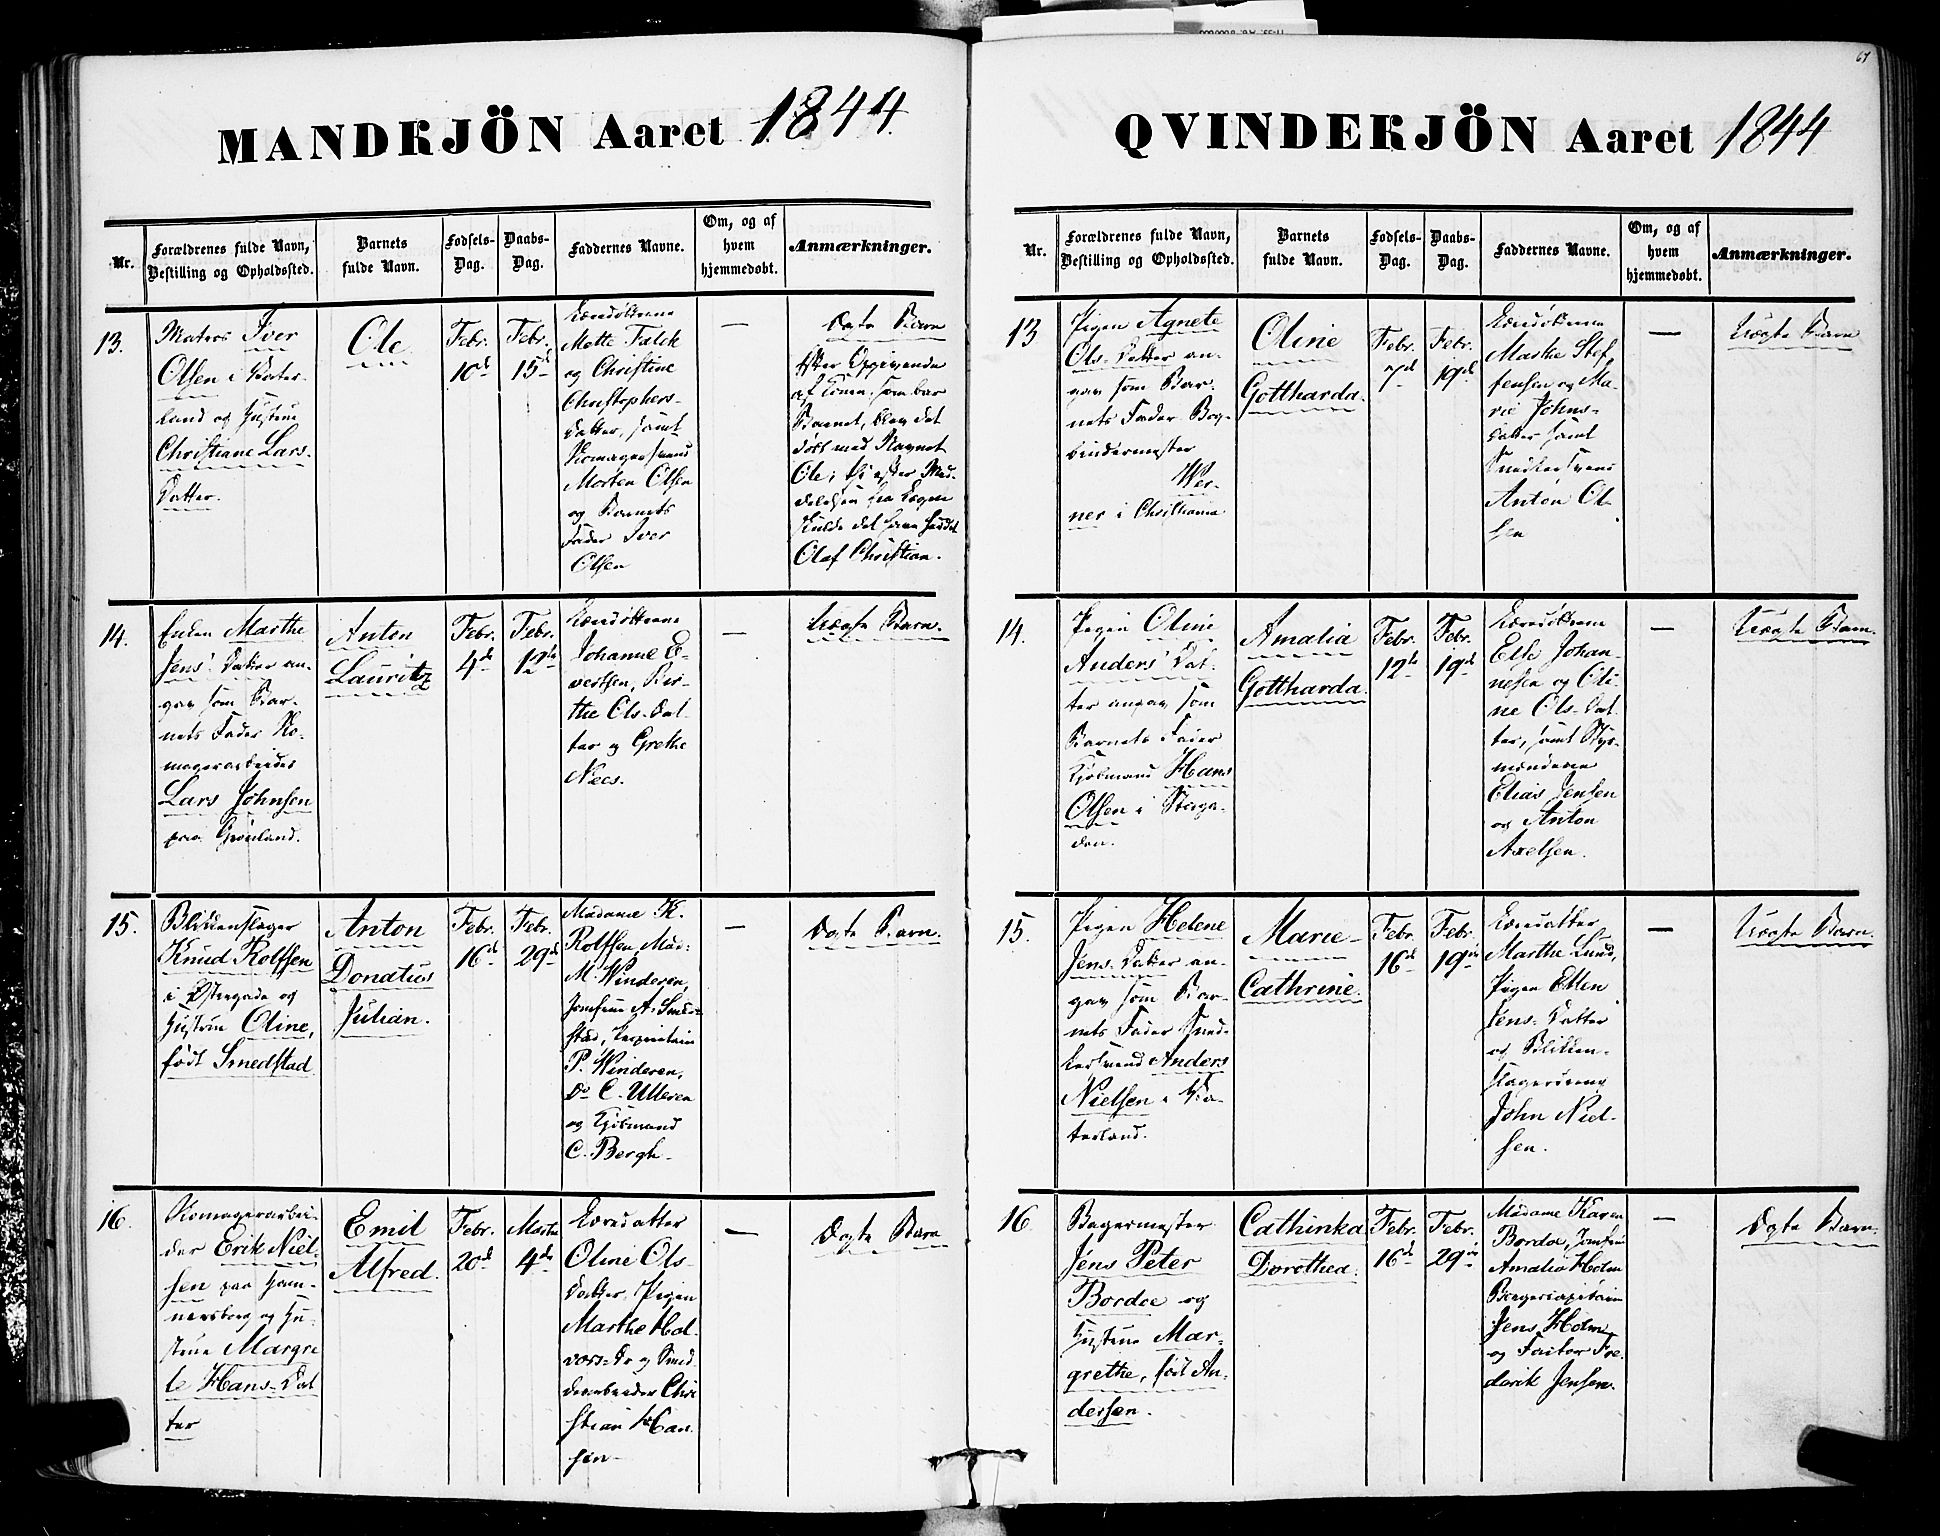 67
MANDKJÖN Aaret 1844.
Nr.
Forældrenes fulde Navn,
Bestilling og Opholdssted.
Barnets
fulde Navn.
Fødsels-
Dag.
Daabs-
Dag.
Faddernes Navne.
Om, og af
hvem
hjemmedøbt.
Anmærkninger.
13.
Matros Iver
Olsen i Vater-
land og Hustrue
Christiane Lars-
Datter.
Ole
Febr.
10d
Febr.
15d
Mette Falck
og Christine
Christophers-
datter, samt
Komagersvend
Morten Olsen
og Barnets
Fader Iver
Olsen
—
Ægte Barn
Efter Opgivende
af Konen, som bar
Barnet, blev det
døbt med Navnet
Ole; thi efter Med-
delelsen fra Egne
skulde det have heddet
Olaf Christian.
14.
Enken Marthe
Jens' Datter an-
gav som Bar-
nets Fader Ko-
magerarbeider
Lars Johnsen
paa Grønland.
Anton
Lauritz
Febr.
4d
Febr.
12te
Johanne E-
vertsen, Ber-
the Ols-Dat-
ter og Grethe
Nees.
—
Uægte Barn.
15.
Blikkenslager
Knud Rolfsen
i Østergade og
Hustrue Oline,
født Smedstad
Anton
Donatus
Julian.
Febr.
16d
Febr.
29d
Madame K.
Rolfsen, Mad:
M Vinderen,
Jomfrue A. Smed-
stad, Proprietair
P. Vinderen,
Do C. Ulleren
og Kjøbmand
C. Bergh.
—
Ægte Barn.
16.
Komagerarbei-
der Erik Niel-
sen paa Ham-
mersborg og Hu-
strue Margre-
te Hans-Dat
ter
Emil
Alfred.
Febr.
20d
Marts
4de
Oline Ols-
datter, Pigen
Marthe Hal-
vors-Dr og Smed
dearbeider Chri
stian Han-
sen
—
Ægte Barn
QVINDEKJÖN Aaret 1844
Nr.
Forældrenes fulde Navn,
Bestilling og Opholdssted.
Barnets
fulde Navn.
Fødsels-
Dag.
Daabs-
Dag.
Faddernes Navne.
Om, og af
hvem
hjemmedøbt.
Anmærkninger.
13
Pigen Agnete
Ols-Datter an-
gav som Bar-
nets Fader Bog-
bindermester
Wer-
ner i Christiania
Oline
Gottharda.
Febr.
7d
Febr.
19d
Marthe Stef,
fensen og Ma-
rie Johns-
datter samt
Snedkersvend
Anton Ol-
sen
—
Uægte Barn
14.
Pigen Oline
Anders' Dat-
ter angav som
Barnets Fader
Kjøbmand Hans
Olsen i Storga-
den.
Amalia
Gottharda.
Febr.
12te
Febr.
19d
Else Johan-
nesen og Oli-
ne Ols-Dat
ter, samt Styr-
mændene
Elias Jensen
og Anton
Axelsen.
—
Uægte Barn.
15.
Pigen Helene
Jens-Datter an-
gav som Bar-
nets Fader Sned-
kersvend Anders
Nielsen i Va-
terland.
Marie
Cathrine.
Febr.
16d
Febr.
19de
Marthe Lund,
Pigen Ellen
Jens-Datter
og Blikken-
slagersvend
John Niel-
sen.
—
Uægte Barn.
16
Bagermester
Jens Peter
Bordoe og
Hustrue Mar-
grethe, født An-
dersen.
Cathinka
Dorothea.
Febr.
16d
Febr.
29de
Madame Karen
Bordoe, Jomfrue
Amalia Holm
Borgercapitain
Jens Holm
og Factor Fre-
derik Jensen.
—
Ægte Barn.